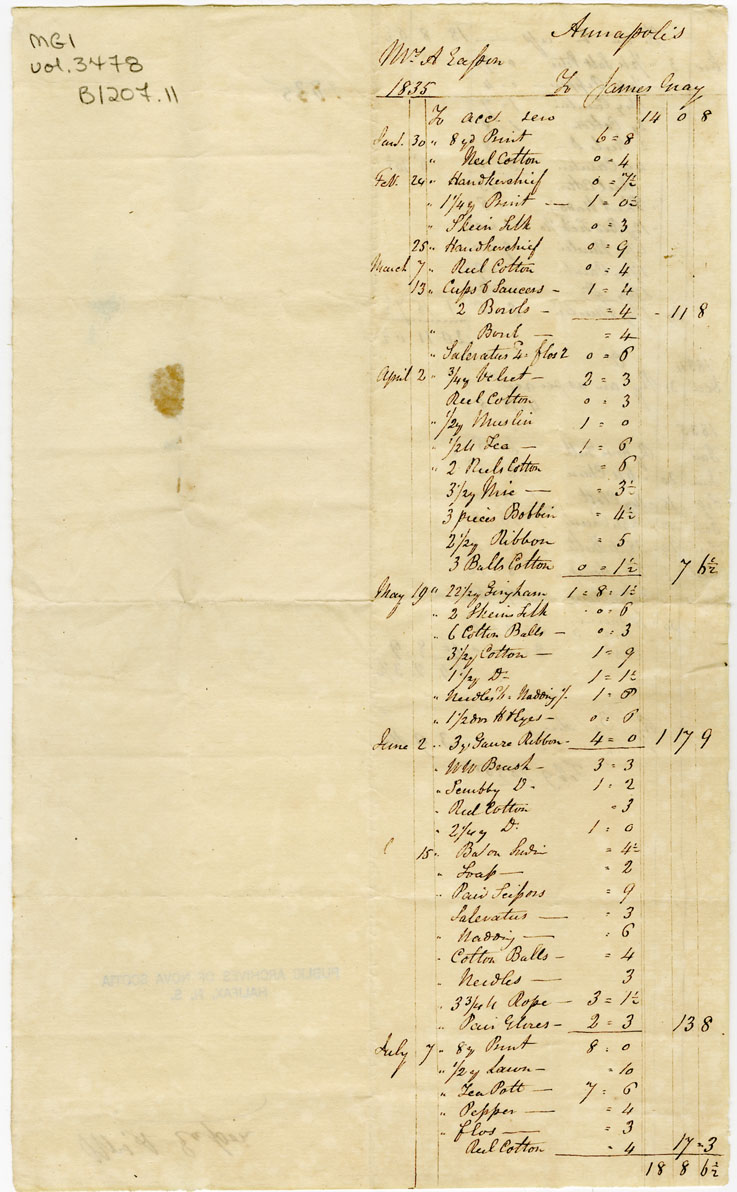 MG1
vol. 3478
B1207.11
Annapolis
Mr A Easson
1835 To James Gray
To acct. 14 0 8
Jan. 30 " 8 yd Print 6 = 8
" Reel Cotton 0 = 4
Feb. 24 " Handkerchief 0 = 7½
" 1¼ y Print — 1 = 0½
" Skein Silk 0 = 3
25 " Handkerchief 0 = 9
March 7 " Reel Cotton 0 = 4
13 " Cups & Saucers - 1 = 4
2 Bowls - = 4 - 11 8
" Bowl — = 4
" Saleratus 4 = flos 2 0 = 6
April 2 " ¾ y Velvet - 2 = 3
Reel Cotton 0 = 3
" ½ y Muslin 1 = 0
" ½ lb Tea — 1 = 6
" 2 Reels Cotton = 6
3½ y — = 3½
3 pieces Bobbin = 4½
2½ y Ribbon = 5
3 Balls Cotton 0 = 1½ 7 6½
May 19 " 22½ y Gingham 1 = 8 = 1½
" 2 Skeins Silk 0 = 6
" 6 Cotton Balls - 0 = 3
3½ y Cotton — 1 = 9
1½ y Do 1 = 1½
" Needles Wadding 1 = 8
" 1½ doz H & Eyes - 0 = 6
June 2 " 3 y Gauze Ribbon - 4 = 0 1 17 9
" WW Brush - 3 = 3
" Scrubby D. 1 = 2
" Reel Cotton = 3
" 2¼ y D. 1 = 0
15 " = 4½
" Soap — = 2
" Pair Scissors = 9
Salevatus — = 3
" Wadding — = 6
" Cotton Balls - = 4
" Needles — 3
" 3¾ lb Rope — 3 = 1½
" Pair Gloves - 2 = 3 13 8
July 7 " 8 y Print 8 : 0
" ½ y Lawn - = 10
" Tea Pott — 7 = 6
" Pepper — = 4
" flos — = 3
Reel Cotton = 4 17 = 3
18 8 6½
PUBLIC ARCHIVES OF NOVA SCOTIA
HALIFAX, N. S.